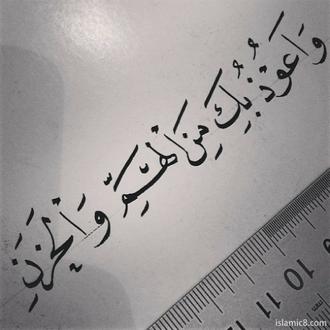 وَأَعُوْذُ بِكَ مِنَ الْهَمِّ وَ الْحَزَنِ
9 10 11 12
islamic8.com